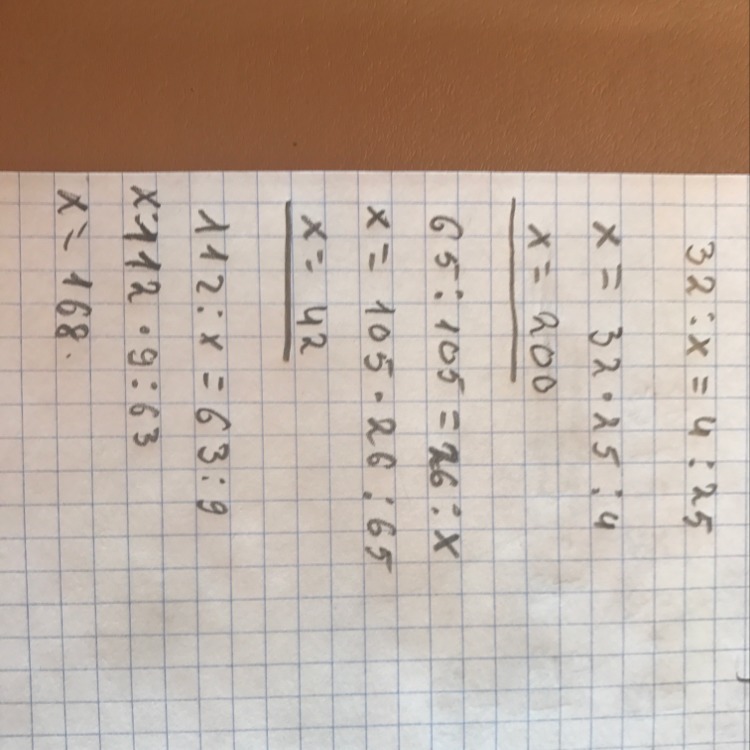 32 : x = 4 : 25
x = 32 · 25 : 4
x = 200
65 : 105 = 26 : x
x = 105 · 26 : 65
x = 42
112 : x = 63 : 9
x = 112 · 9 : 63
x = 168.